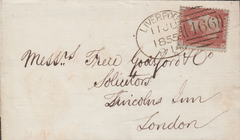 LIVERPOOL
11 JU
1855
466
Messrs. Freer Godfrey & Co
Solicitors
Lincolns Inn
London